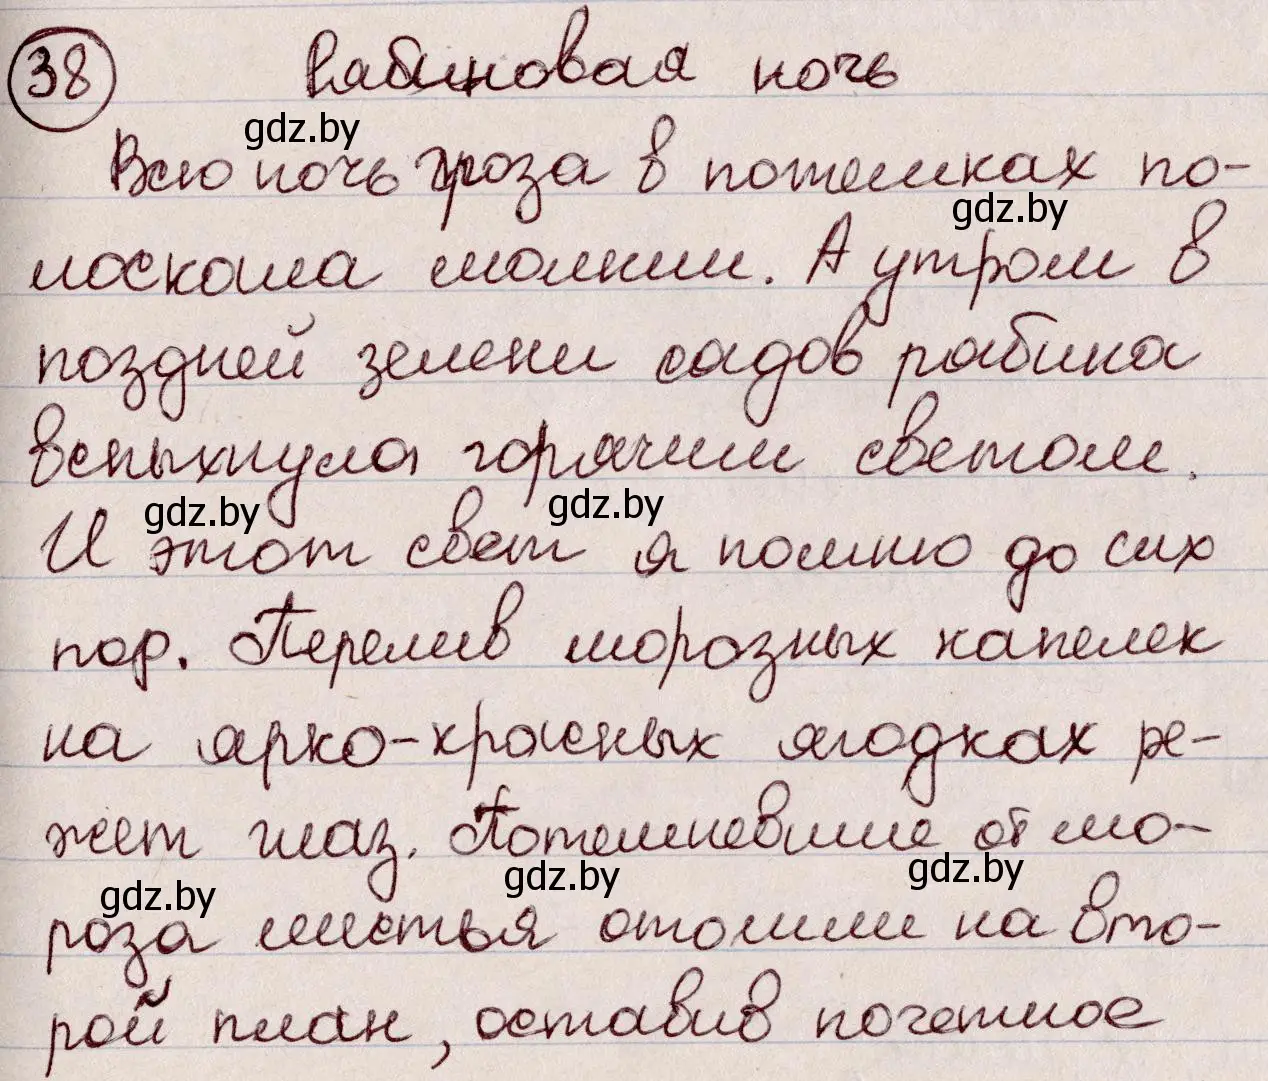 38 Рябиновая ночь
gdz.by
Всю ночь гроза в потемках по-
gdz.by
лоскала молнии. А утром в
поздней зелени садов рябина
вспыхнула горячим светом.
gdz.by gdz.by
И этот свет я помню до сих
пор. Перелив морозных капелек
на ярко-красных ягодках ре-
жет глаз. Потемневшие от мо-
gdz.by gdz.by gdz.by
роза листья отошли на вто-
рой план, оставив почетное